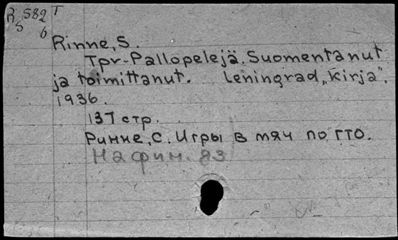 R 582 T
5 6
Rinne, S.
Tpv-Pallopelejä. Suomentanut
ja toimittanut. Leningrad, „Kirja".
1936.
137 стр.
Ринне, С. Игры в мяч по ГТО.
На фин. яз